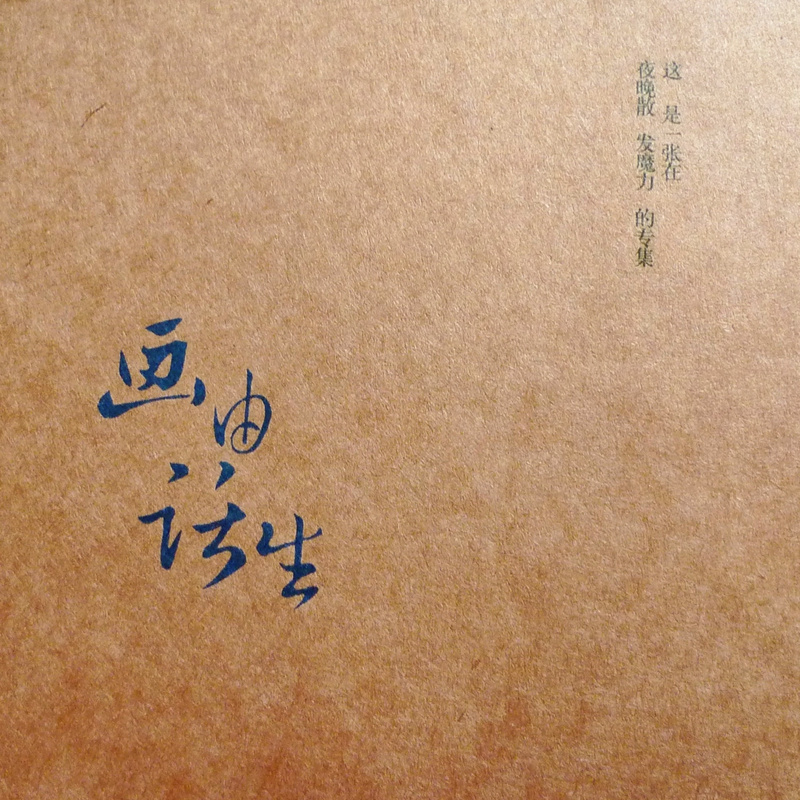 这 是一张在
夜晚散 发魔力 的专集
画由
话生